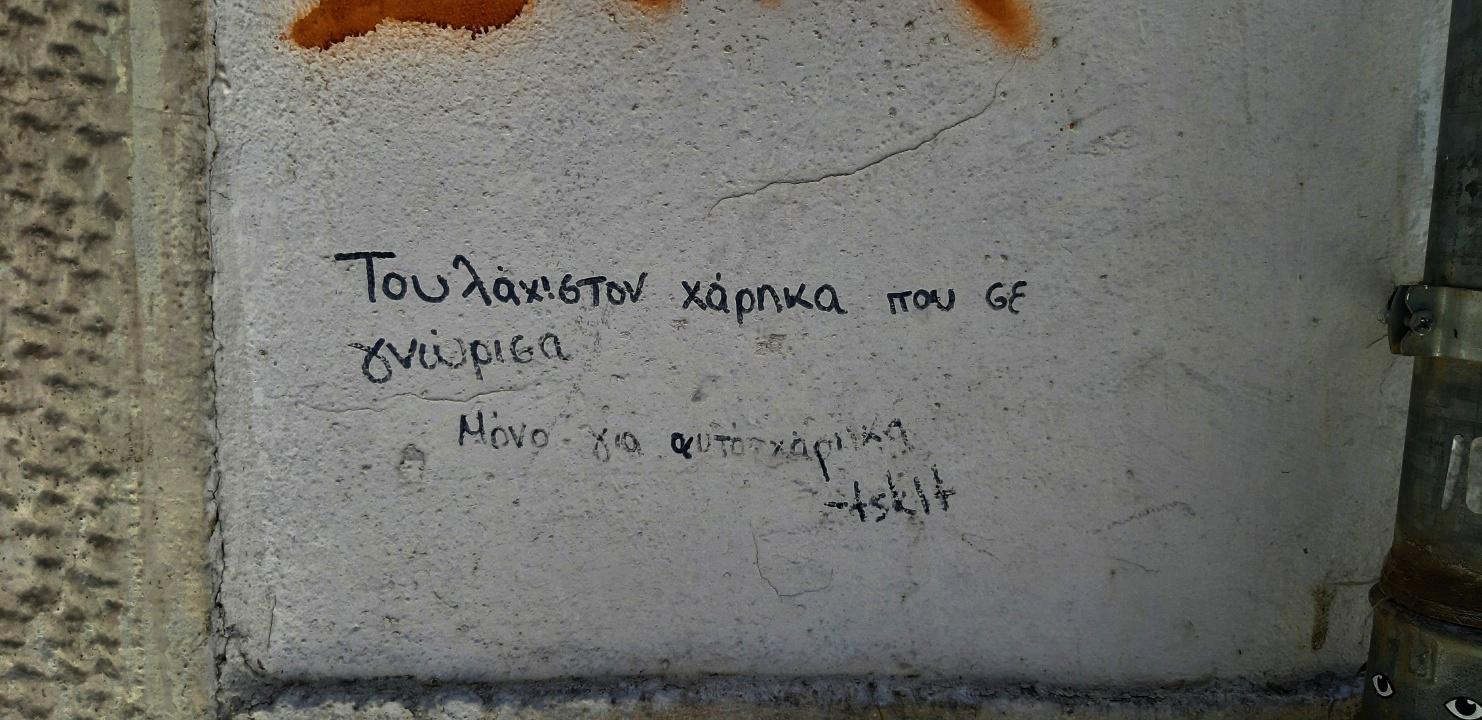 Τουλάχιστον χάρηκα που σε
γνώρισα
Μόνο για αυτό χάρηκα
-tsklt